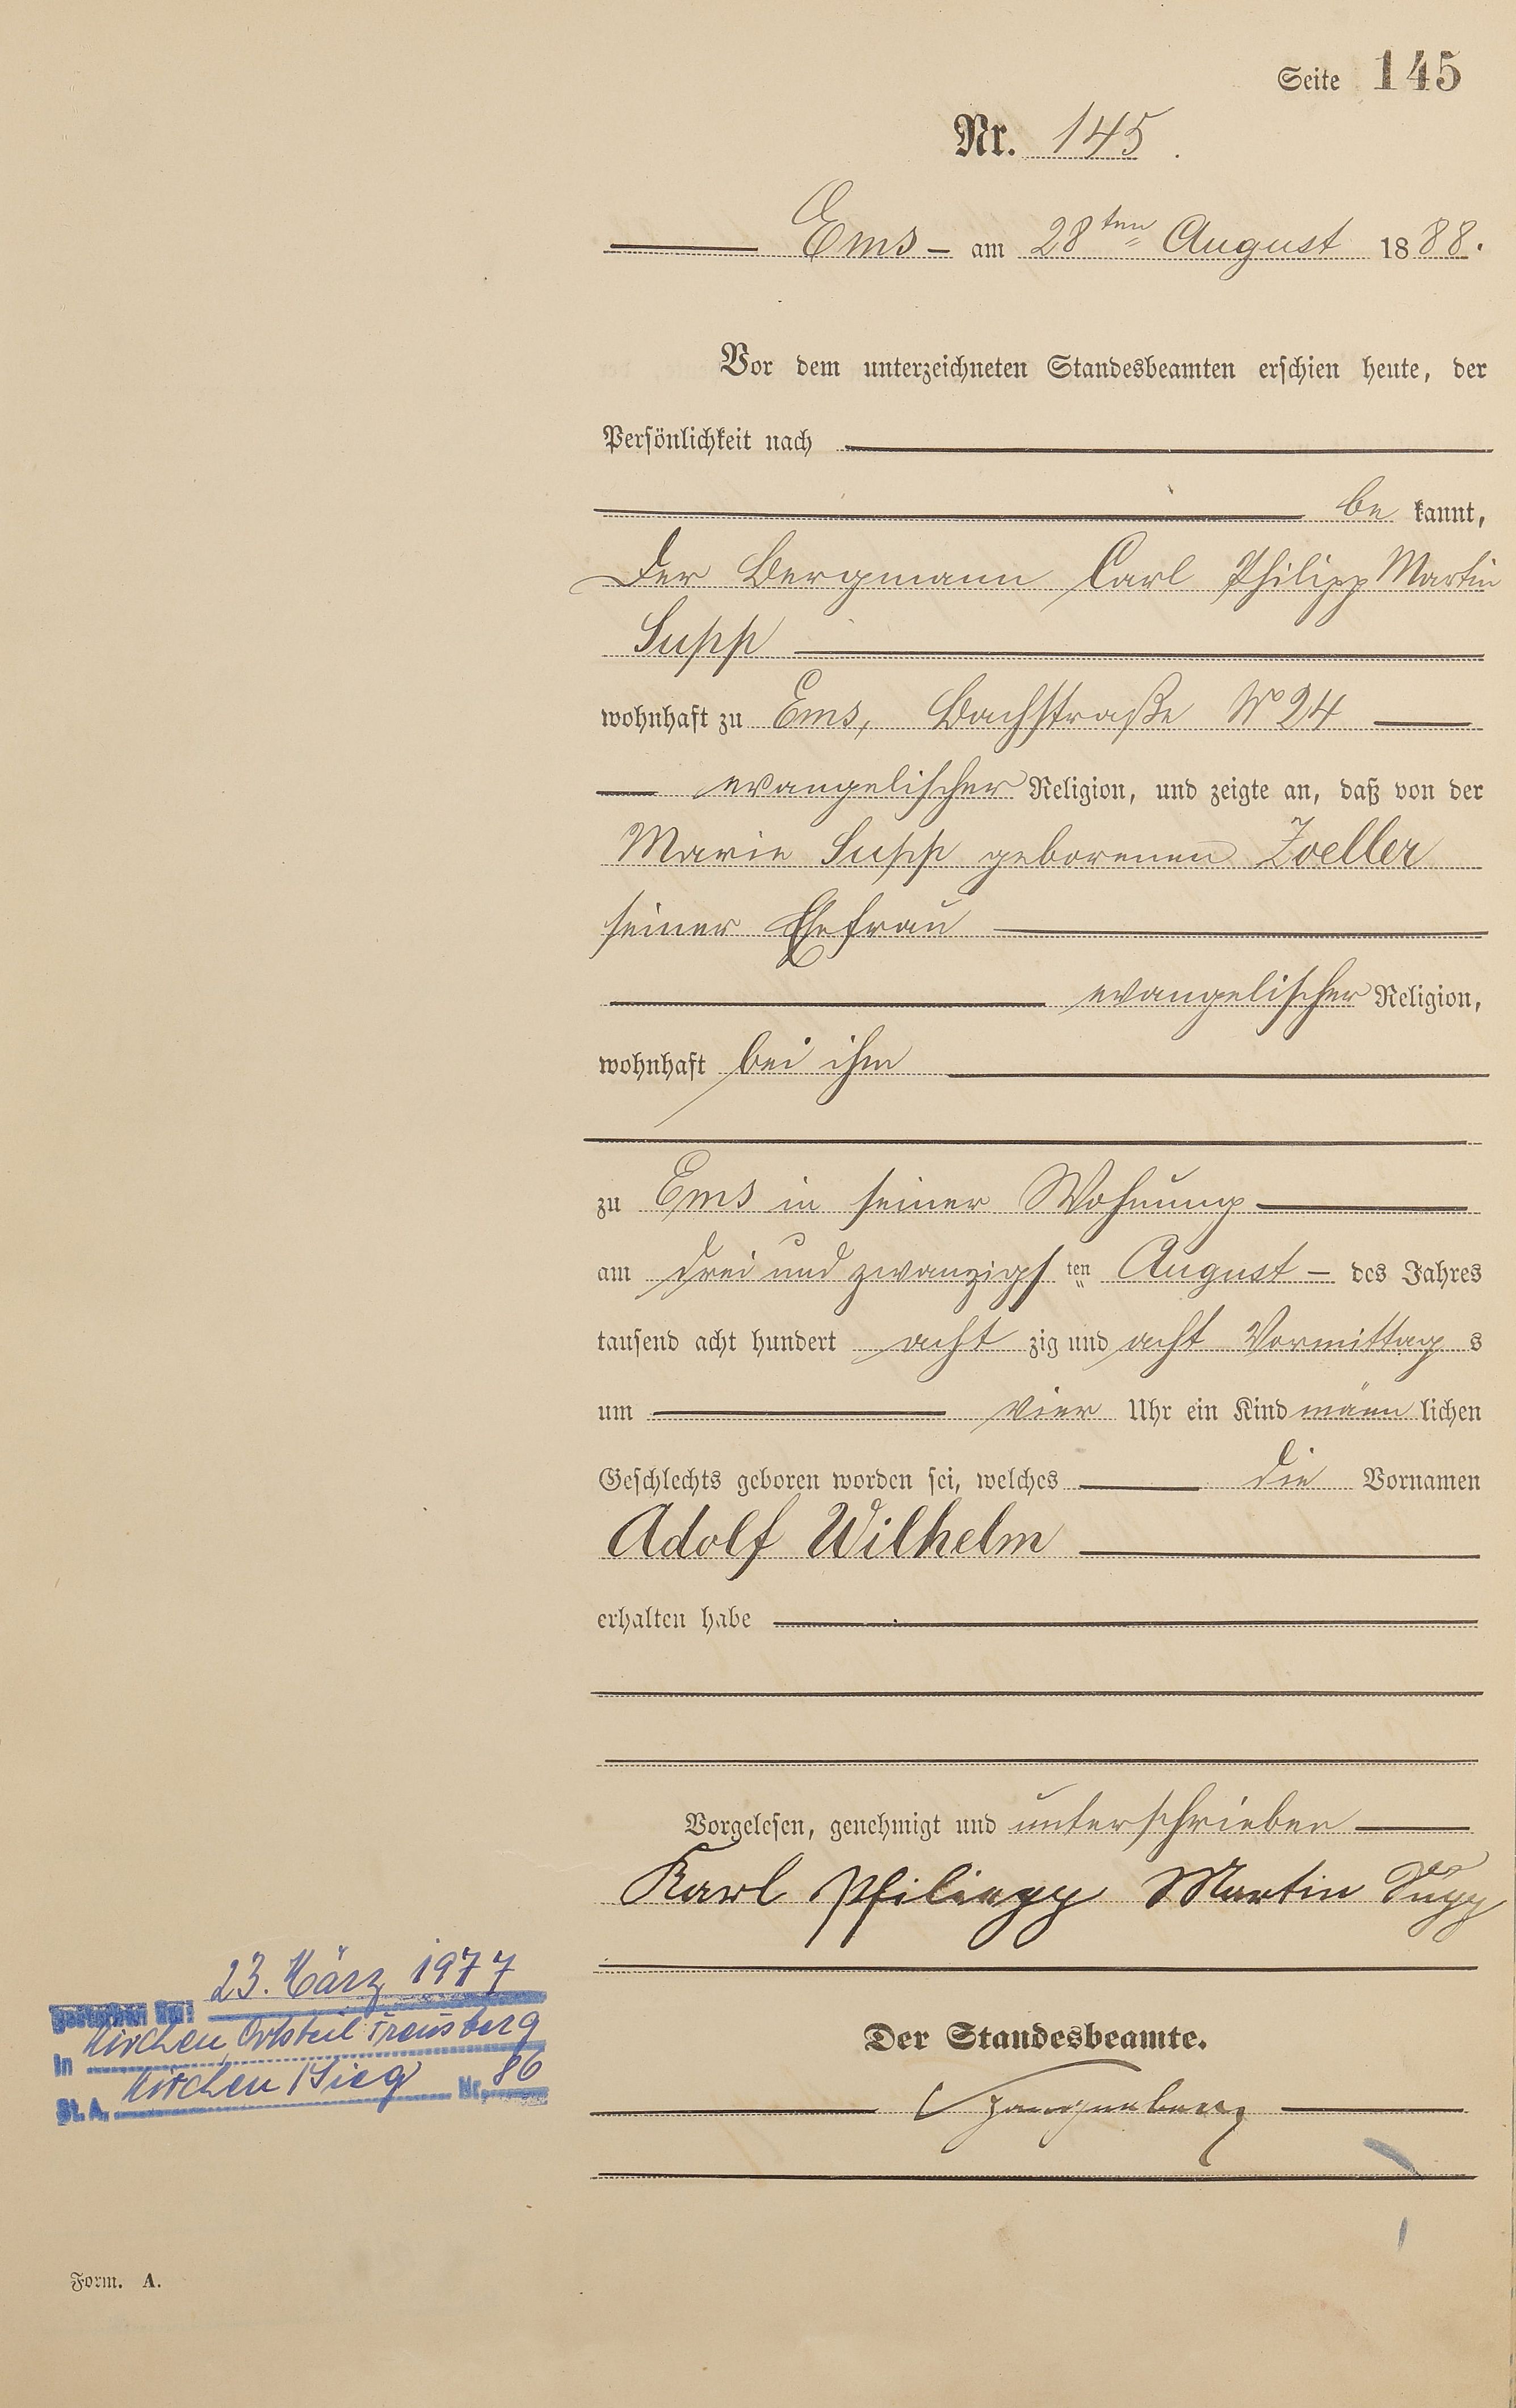 Seite 145
Nr. 145.
Ems - am 28ten August 1888.
Vor dem unterzeichneten Standesbeamten erschien heute, der
Persönlichkeit nach
be kannt,
der Bergmann Carl Philipp Martin
Supp
wohnhaft zu Ems, Bachstraße No 24
evangelischer Religion, und zeigte an, daß von der
Marie Supp geborenen Zoeller
seiner Ehefrau
evangelischer Religion,
wohnhaft bei ihm
zu Ems in seiner Wohnung
am drei und zwanzigsten August - des Jahres
tausend acht hundert acht zig und acht Vormittag s
um vier Uhr ein Kind männ lichen
Geschlechts geboren worden sei, welches die Vornamen
Adolf Wilhelm
erhalten habe
Vorgelesen, genehmigt und unterschrieben
Karl Philiepp Martin Supp
Der Standesbeamte.
Gestorben am: 23. März 1977
in Kirchen, Ortsteil Freusberg
St. A. Kirchen/Sieg Nr. 86
Form. A.